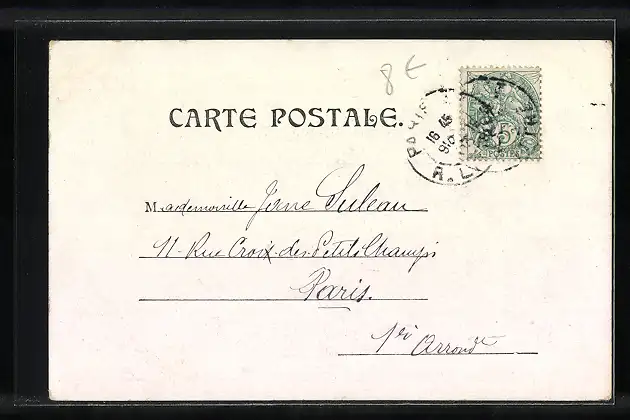 8 €
CARTE POSTALE.
PARIS
16 45
R. L
5c
POSTES
Mademoiselle Suleau
11 - Rue Croix-des-Petits Champs
Paris.
1er Arrondt